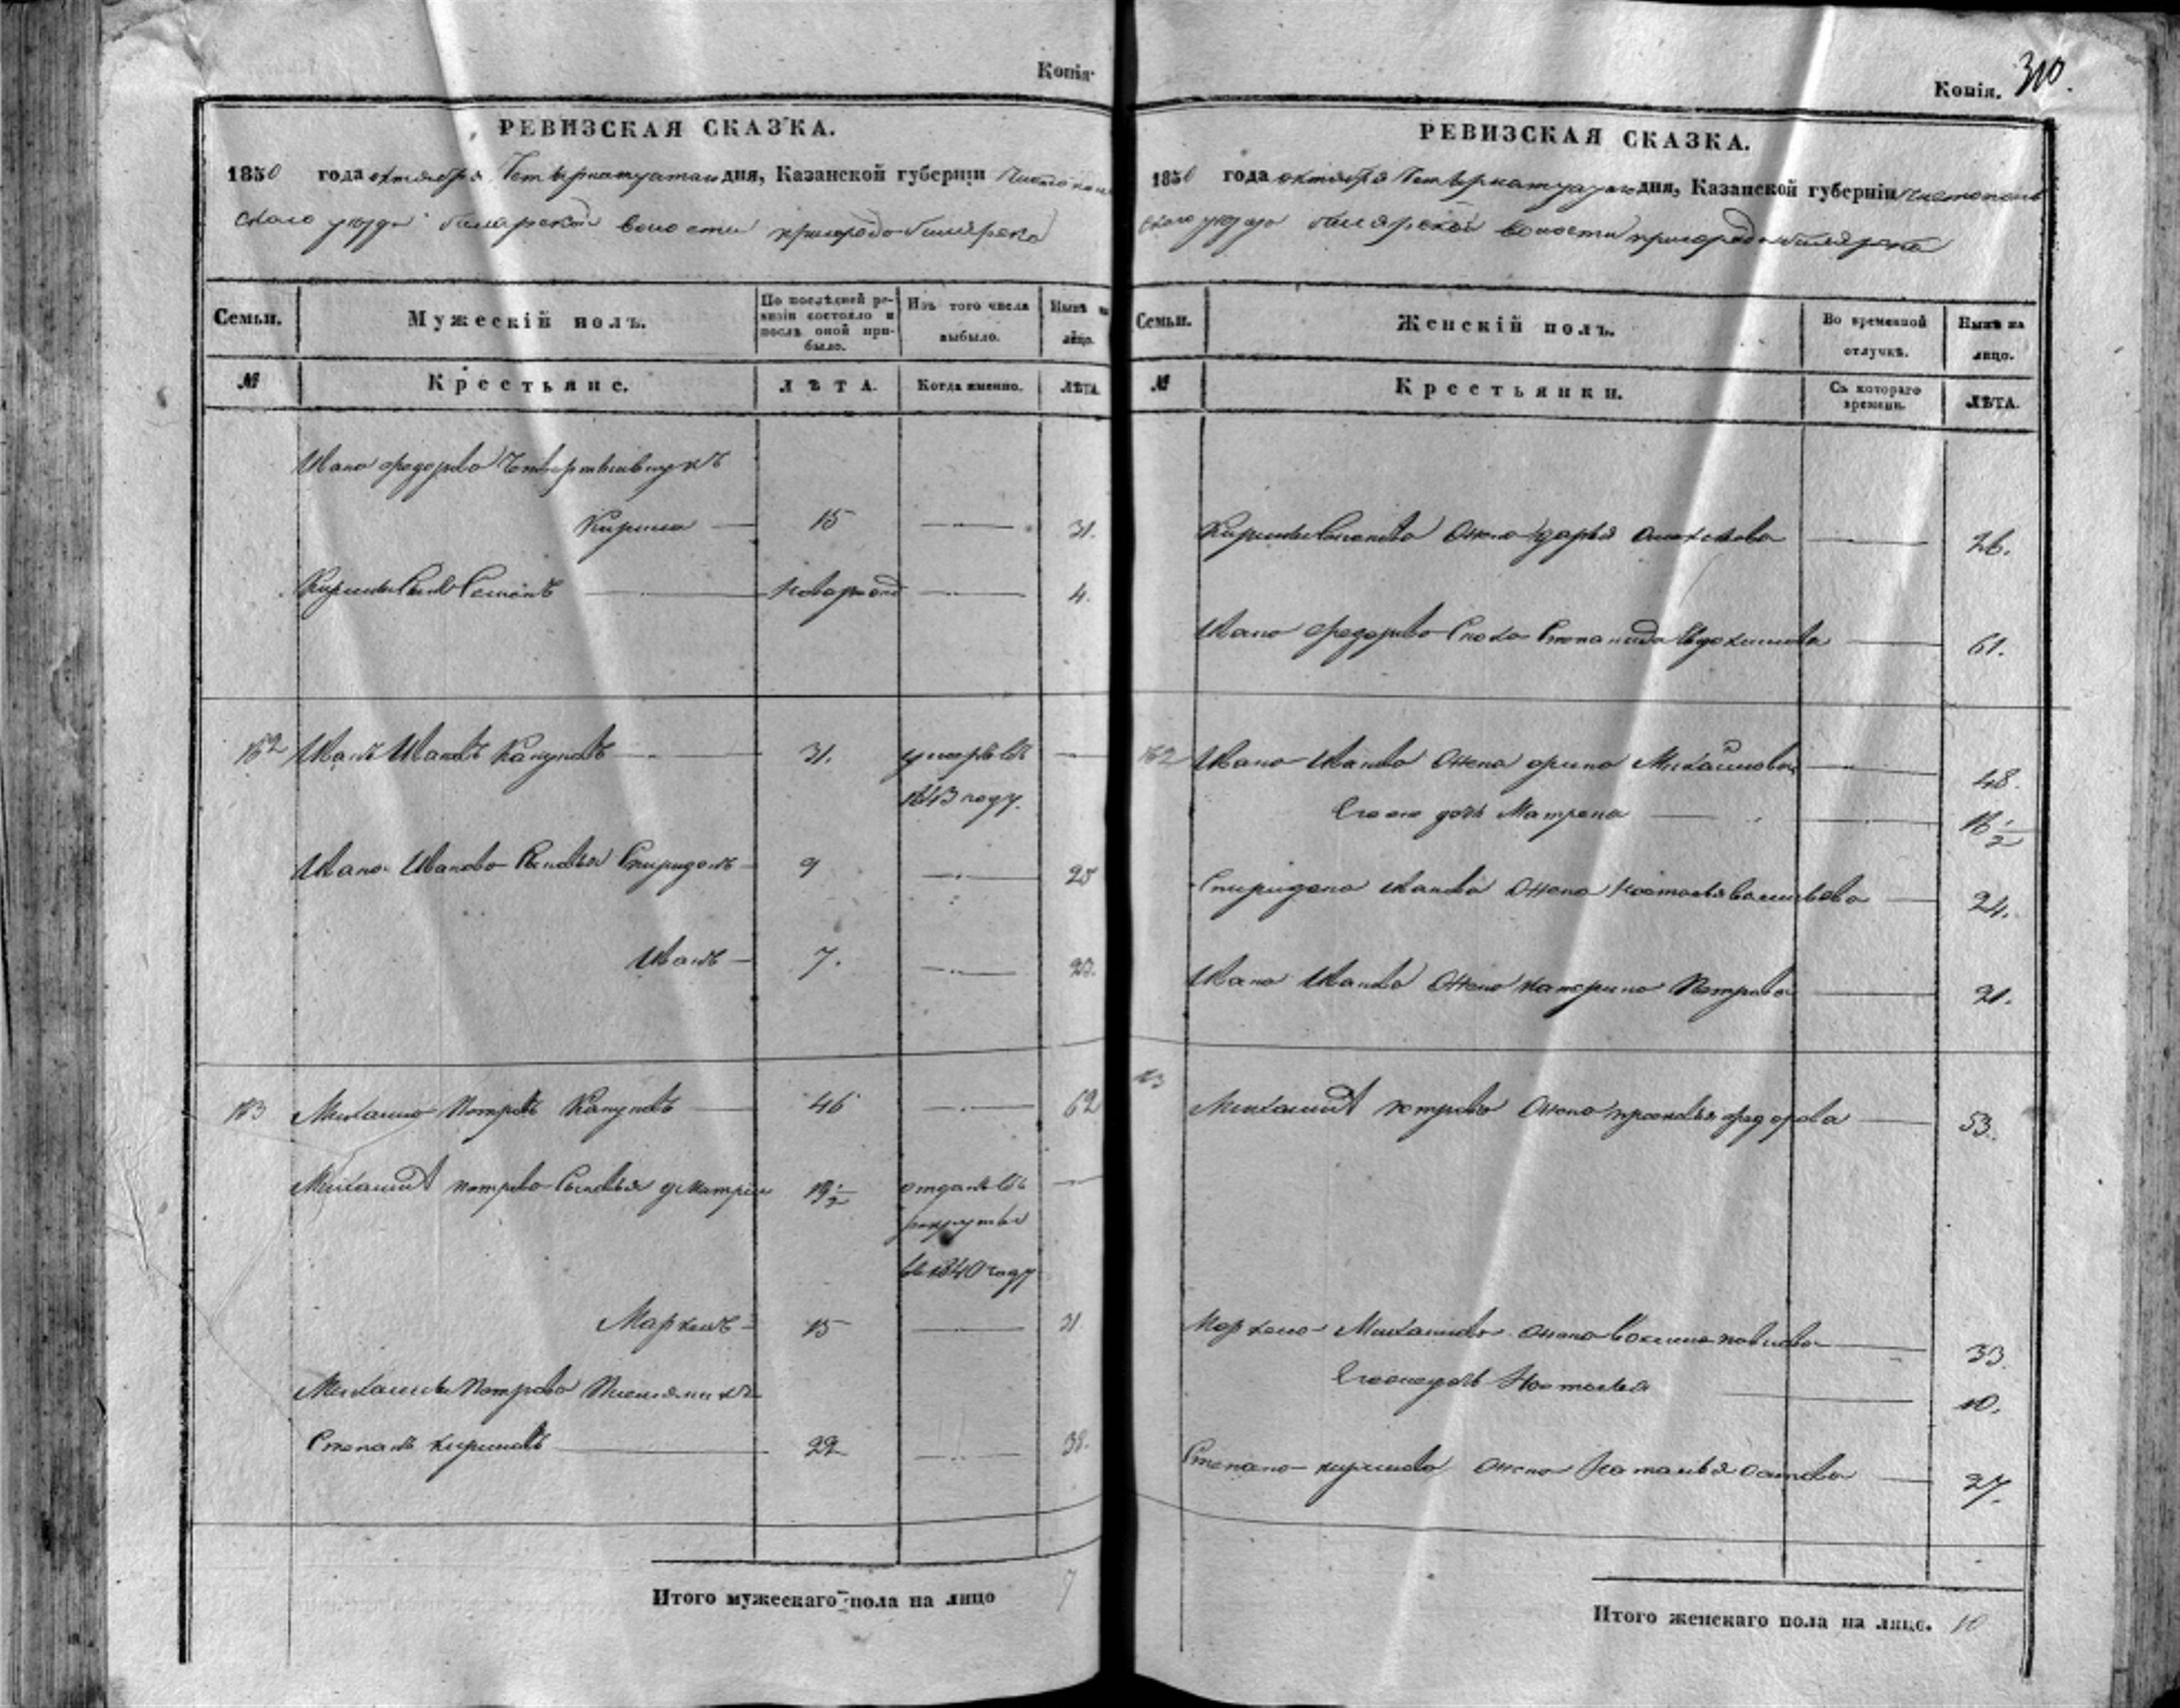 Копія
РЕВИЗСКАЯ СКАЗКА.
1850 года октября Четырнатцатаго дня, Казанской губерніи Чистополь
скаго уезда билярской волости пригорода билярска
Семьи.
Мужескій полъ.
По послѣдней ре-
визіи состояло и
послѣ оной при-
было.
Изъ того числа
выбыло.
Нынѣ на
лицо.
№
Крестьяне.
ЛѢТА.
Когда именно.
ЛѢТА.
Ивана федорова
Кирила 15 31.
Семенъ 4.
162 Иванъ Ивановъ 31. умеръ въ
1843 году.
Ивана Иванова Сыновья Спиридонъ 9 25
Иванъ 7. 23.
163 Михайла Петровъ 46 62
Михаила петрова Сыновья дмитрий 19 1/2 отданъ въ
рекруты
въ 1840 году
15 31
Михаила Петрова Племянникъ
Степанъ кириловъ 22 38.
Итого мужескаго пола на лицо 7
Копія. 310.
РЕВИЗСКАЯ СКАЗКА.
1850 года октября Четырнатцатаго дня, Казанской губерніи Чистополь
скаго уезда билярской волости пригорода билярска
Семьи.
Женскій полъ.
Во временной
отлучкѣ.
Нынѣ на
лицо.
№
Крестьянки.
Съ котораго
времени.
ЛѢТА.
жена дарья 26.
Ивана федорова Сноха Степанида Евдокимова 61.
162 Ивана Иванова жена орина Михайлова 48.
Его дочь Матрена 16 1/2
Спиридона иванова жена Настасья васильева 24.
Ивана Иванова жена катерина Петрова 21.
163 Михаила петрова жена прасковья федорова 53.
Михайлова жена 33.
дочь Настасья 10.
Степана кирилова жена Наталья 27.
Итого женскаго пола на лицо. 10